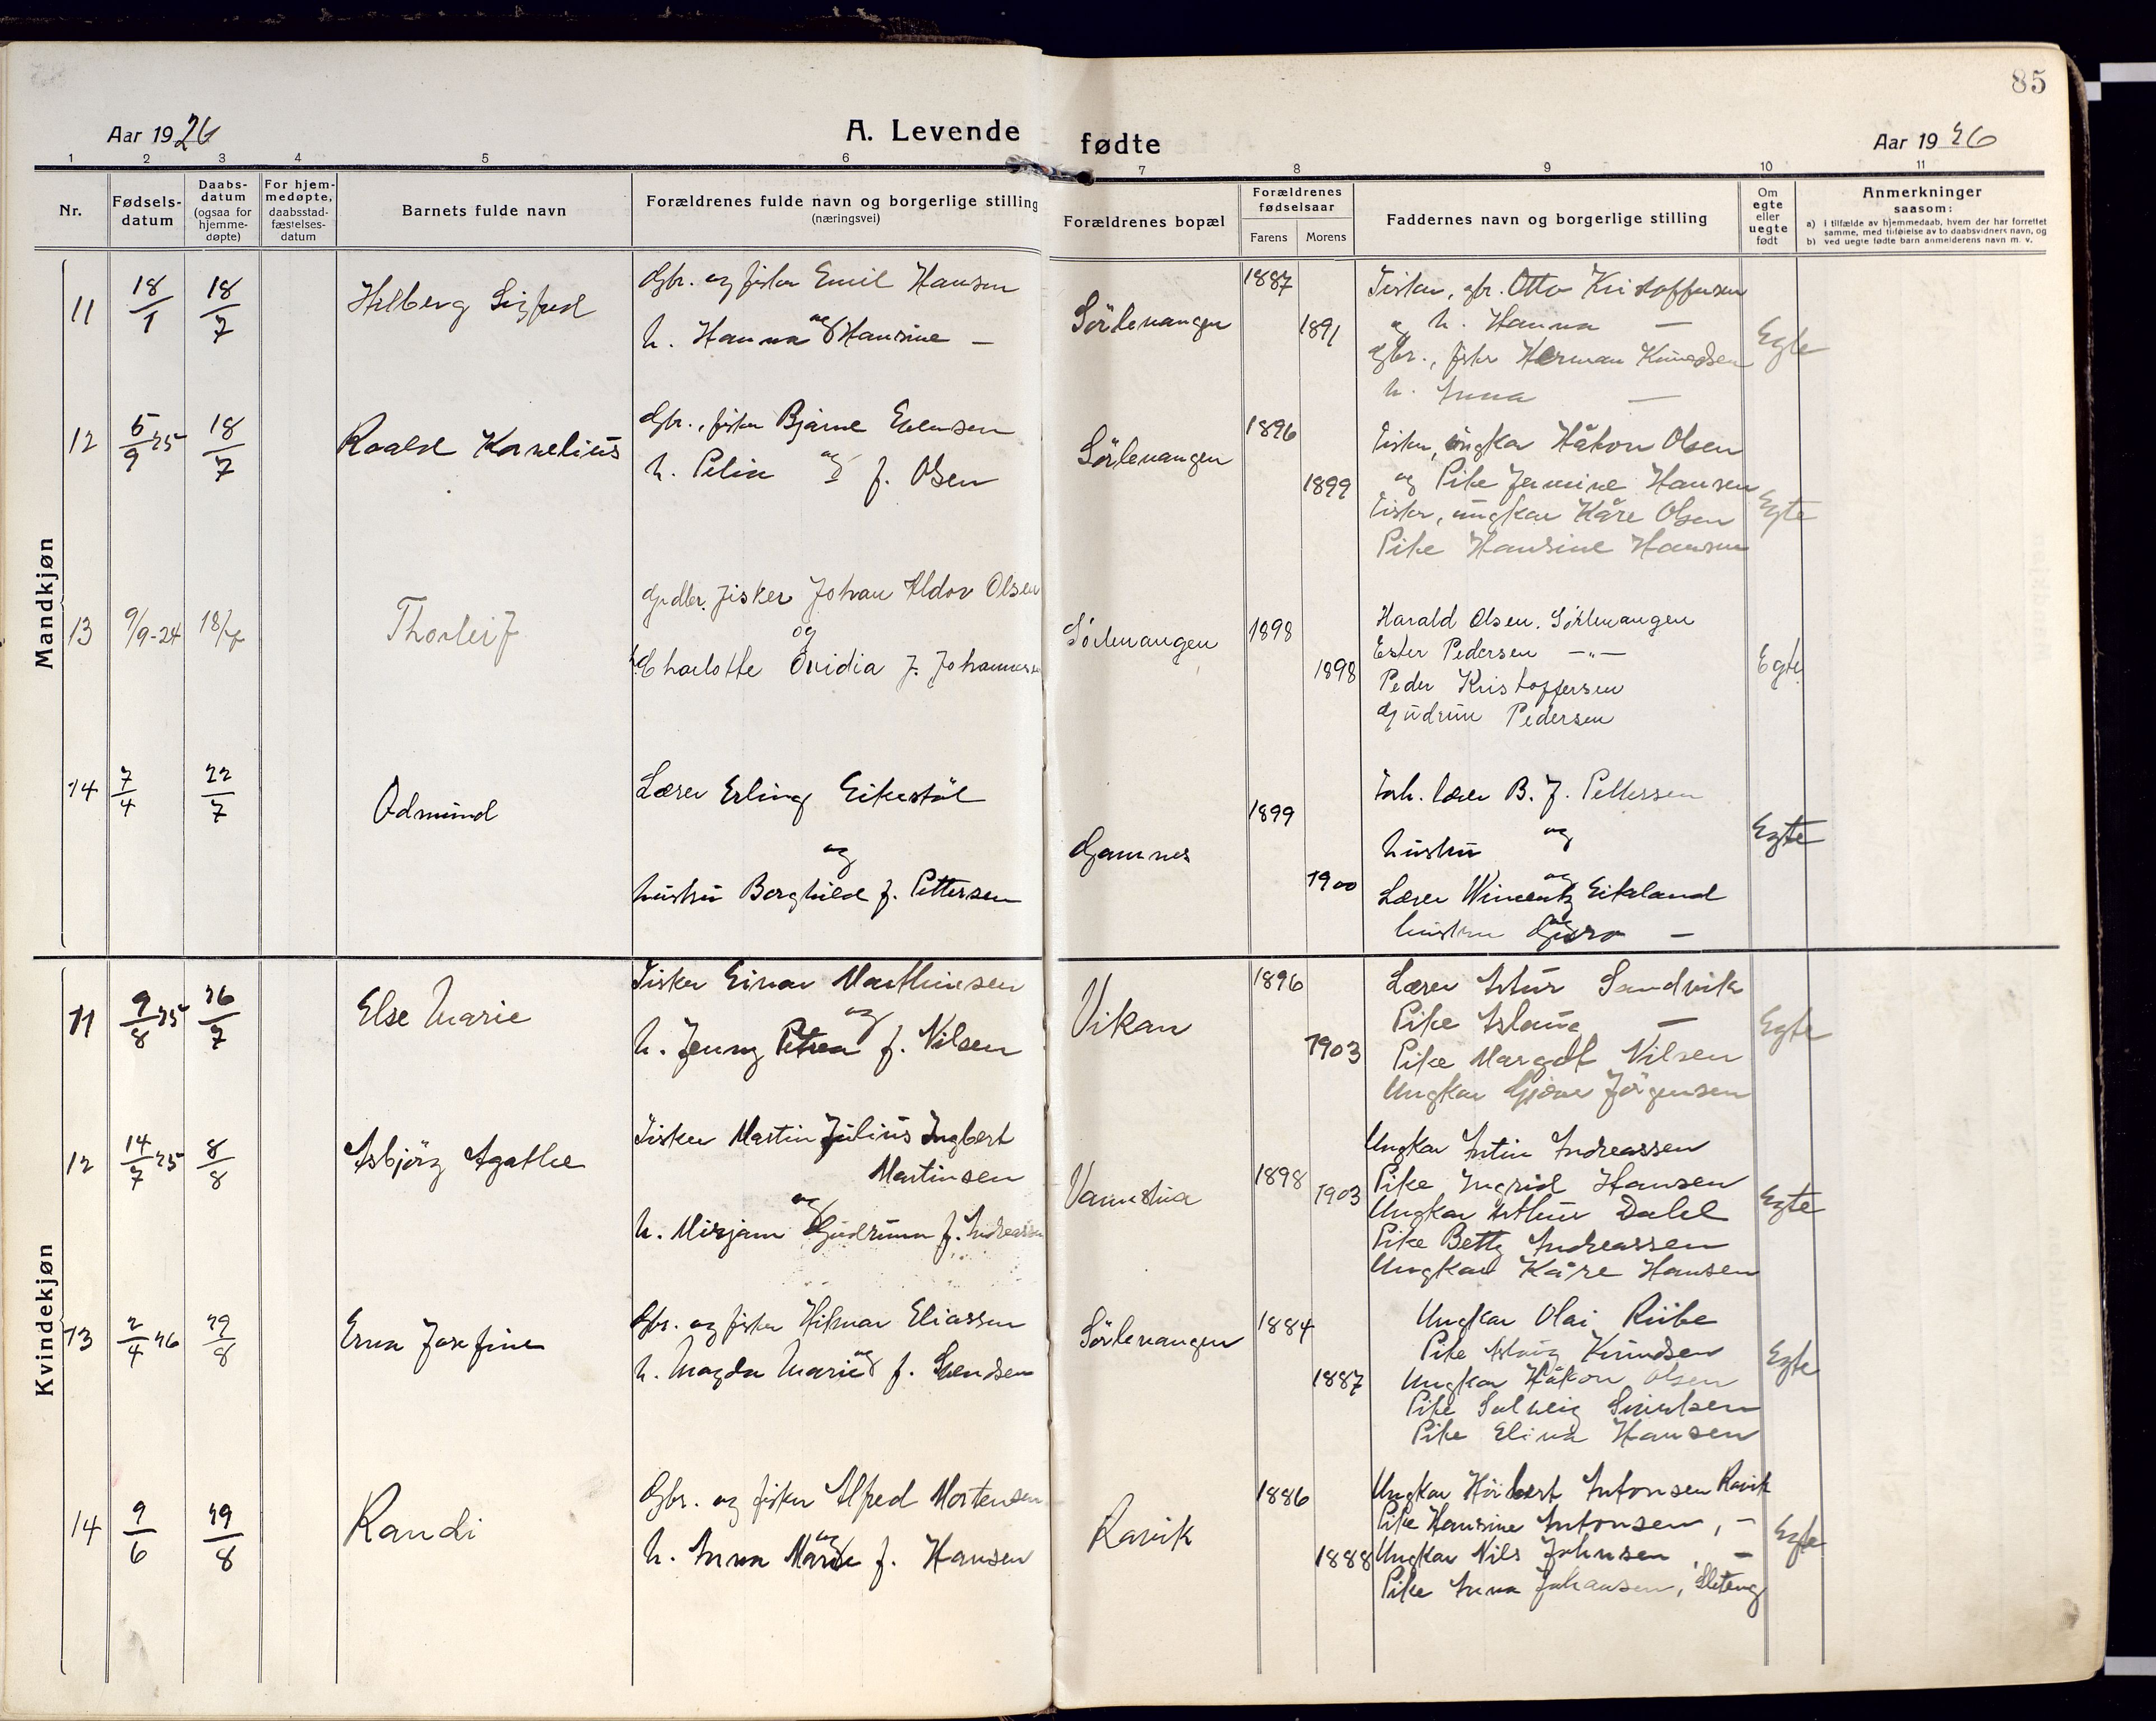 85
Aar 1926
A. Levende fødte
Aar 1926
1 2 3 4 5 6 7 8 9 10 11
Nr.
Fødselsdatum
Daabsdatum (ogsaa for hjemmedøpte)
For hjemmedøpte, daabsstadfæstelsesdatum
Barnets fulde navn
Forældrenes fulde navn og borgerlige stilling (næringsvei)
Forældrenes bopæl
Forældrenes fødselsaar
Farens Morens
Faddernes navn og borgerlige stilling
Om egte eller uegte født
Anmerkninger saasom:
a) i tilfælde av hjemmedaab, hvem der har forrettet samme, med tilføielse av to daabsvidners navn, og
b) ved uegte fødte barn anmelderens navn m. v.
Mandkjøn
11 18/1 18/7 Hilberg Sigfred
Gbr. og fisker Emil Hansen
og
h. Hanna Hansine —
Sörlenangen 1887 1891
Fisker, gbr. Otto Kristoffersen
og h. Hanna —
Gbr., fisker Herman Knudsen
h. Anna —
Egte
12 6/9 25 18/7 Roald Kornelius
Gbr., fisker Bjarne Evensen
og
h. Pelia f. Olsen
Sörlenangen 1896 1899
Fisker, ungkar Håkon Olsen
og Pike Jermine Hansen
Fisker, ungkar Kåre Olsen
Pike Hansine Hansen
Egte
13 9/9-24 18/7 Thorleif
Grdbr. fisker Johan Aldor Olsen
og
h. Charlotte Ovidia f. Johannessen
Sörlenangen 1898 1898
Harald Olsen. Sörlenangen
Ester Pedersen —"—
Peder Kristoffersen
Gudrun Pedersen
Egte
14 7/4 22/7 Odmund
Lærer Erling Eikestöl
og
hustru Borghild f. Pettersen
Gamnes 1899 1900
Forh. lærer B. J. Pettersen
og
hustru
og
Lærer Wincentz Eikeland
og
hustru Guro —
Egte
Kvindekjøn
11 9/8 25 26/7 Else Marie
Fisker Einar Marthinsen
og
h. Jenny Petrea f. Nilsen
Vikan 1896 1903
Lærer Artur Sandvik
Pike Aslaug —
Pike Margot Nilsen
Ungkar Gjöver Jörgensen
Egte
12 14/7 25 8/8 Asbjörg Agathe
Fisker Martin Julius Ingbert
Martinsen
og
h. Mirjam Gudrunn f. Andreassen
Vannstua 1898 1903
Ungkar Antin Andreassen
Pike Ingrid Hansen
Ungkar Arthur Dahl
Pike Betty Andreassen
Ungkar Kåre Hansen
Egte
13 2/4 26 29/8 Erna Josefine
Gbr. og fisker Hilmar Eliassen
og
h. Magda Marie f. Svendsen
Sörlenangen 1884 1887
Ungkar Olai Riibe
Pike Aslaug Knudsen
Ungkar Håkon Olsen
Pike Solveig Simonsen
Pike Elina Hansen
Egte
14 9/6 29/8 Randi
Gbr. og fisker Alfred Mortensen
og
h. Anna Marie f. Hansen
Ravik 1886 1888
Ungkar Herbert Antonsen Ravik
Pike Hansine Antonsen, —
Ungkar Nils Johnsen, —
Pike Anna Johansen, Sleteng
Egte